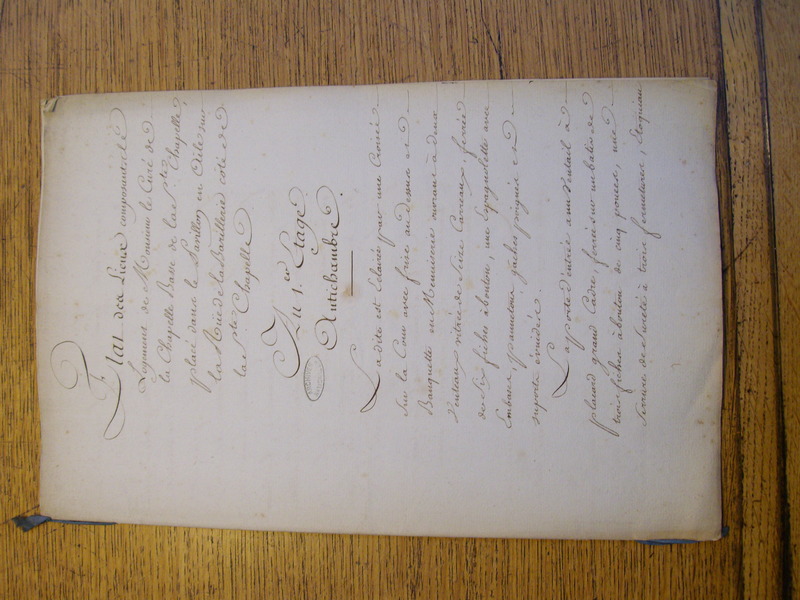 Etat des Lieux composant le
Logement de Monsieur le Curé de
la Chapelle Basse de la Ste. Chapelle,
placé dans le Pavillon en Aile sur
la Rüe de la Barillerie côté de
la Ste. Chapelle
Au 1.er Etage
Antichambre.
Ladite est Eclairée par une Croisée
sur la Cour avec frise au dessus et
Banquette en Menuiserie ouvrant à deux
Venteaux vitrée de Seize Carreaux ferrée
de Six fiches à bouton, une Espagnolette avec
Embases, pannetons, gâches poignée et
suports évuidée.
La porte d'entrée a un Ventail à
placard grand Cadre, ferrée sur un batis de
trois fiches à bouton de cinq pouces, une
Serrure de Sureté à trois fermetures,